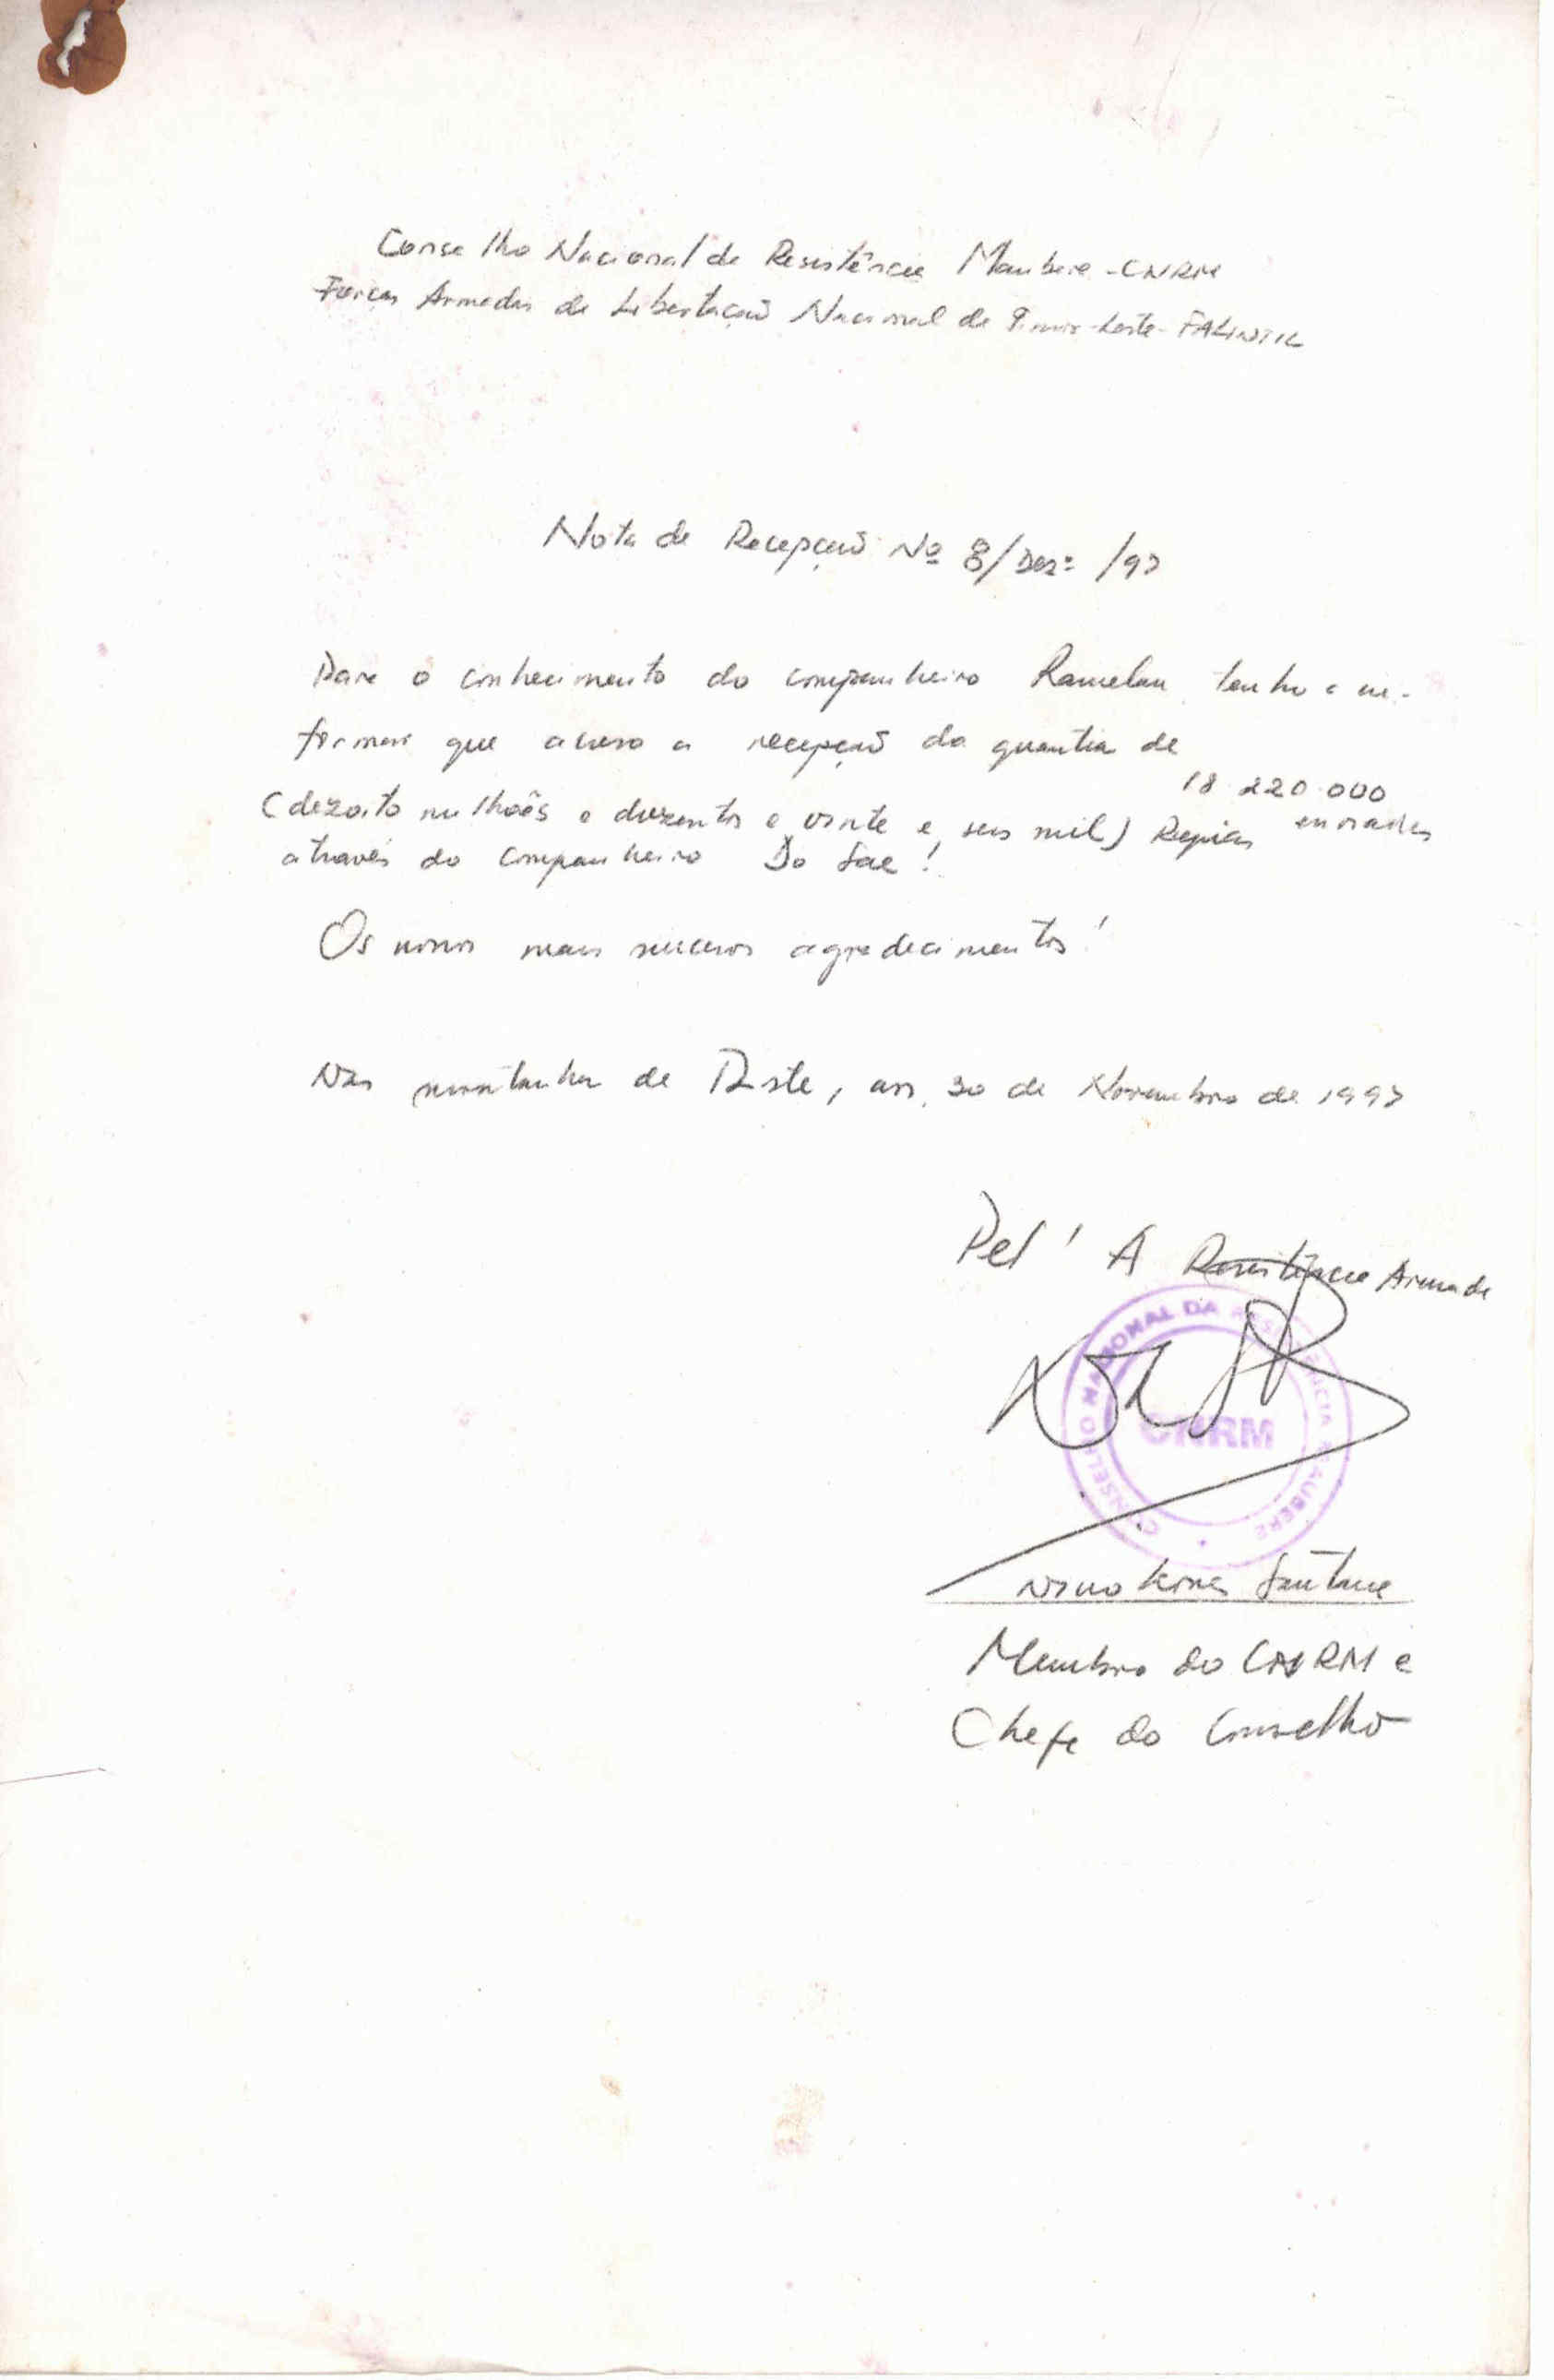 Conselho Nacional de Resistência Maubere - CNRM
Forças Armadas de Libertação Nacional de Timor-Leste - FALINTIL
Nota de Recepção Nº 8/Dez:/97
Para o conhecimento do companheiro Ramelau, tenho a in-
formar que acuso a recepção da quantia de
18.220.000
(dezoito milhões e duzentos e vinte e seis mil) Rupias enviadas
através do companheiro So Sae!
Os nossos mais sinceros agradecimentos!
Nas montanhas de Leste, aos, 30 de Novembro de 1997
Pel' A Resistência Armada
CONSELHO NACIONAL DA RESISTÊNCIA MAUBERE
CNRM
Nino Konis Santana
Membro do CNRM e
Chefe do Conselho